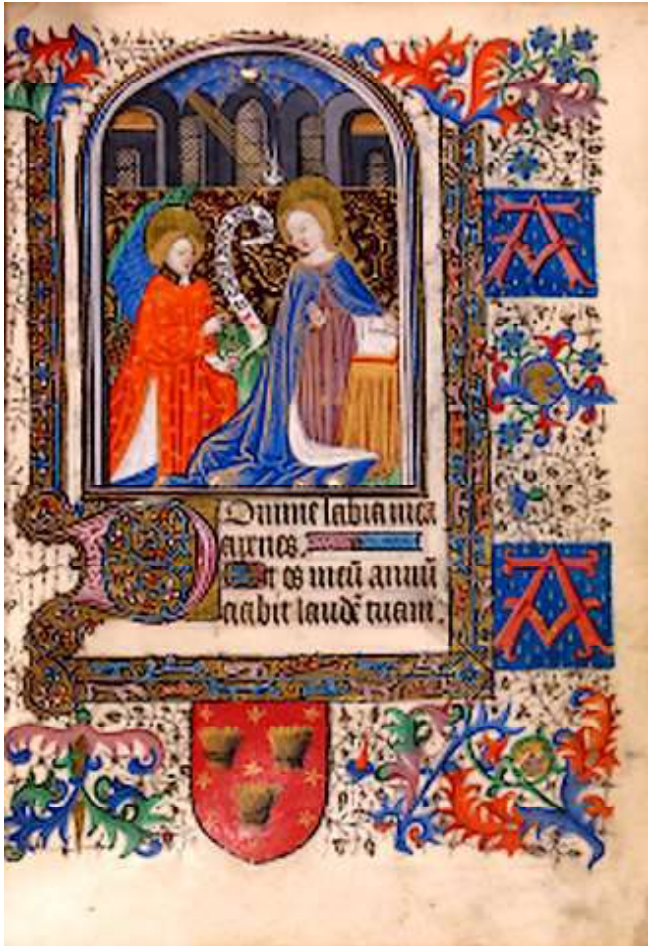 A
Domine labia mea
aperies.
Et os meū annū
ciabit laudē tuam.
A